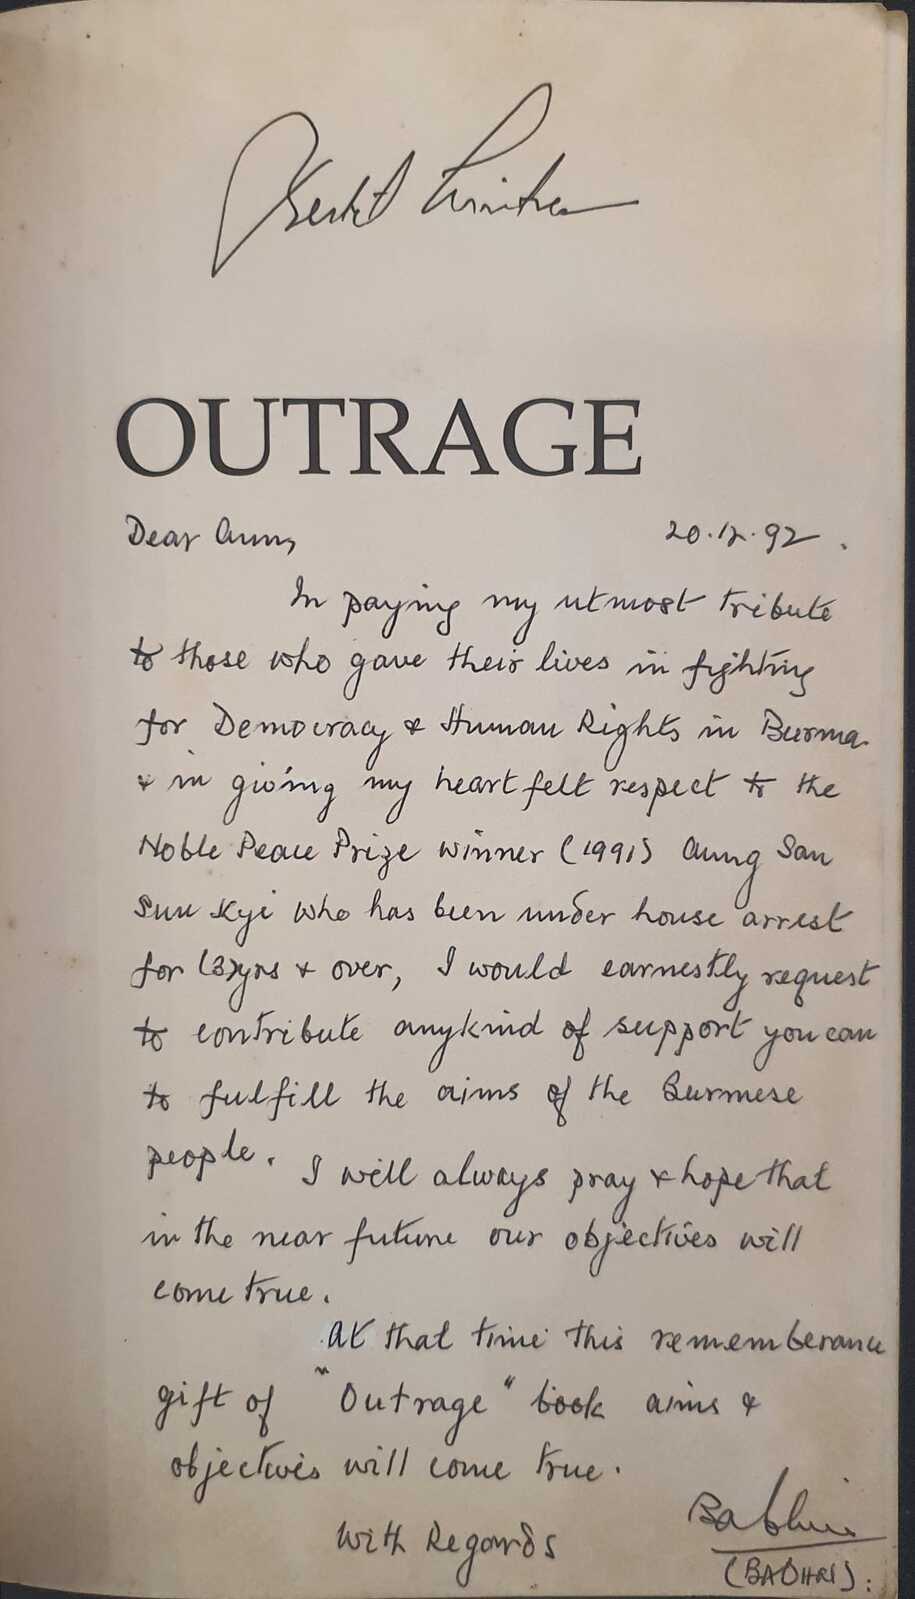 Bertil Lintner
OUTRAGE
Dear Aunn,
20.12.92.
In paying my utmost tribute
to those who gave their lives in fighting
for Democracy & Human Rights in Burma
& in giving my heartfelt respect to the
Noble Peace Prize winner (1991) Aung San
Suu Kyi who has been under house arrest
for (3)yrs & over, I would earnestly request
to contribute anykind of support you can
to fulfill the aims of the Burmese
people. I will always pray & hope that
in the near future our objectives will
come true.
At that time this rememberance
gift of "Outrage" book aims &
objectives will come true.
With Regards
(BADHRI).